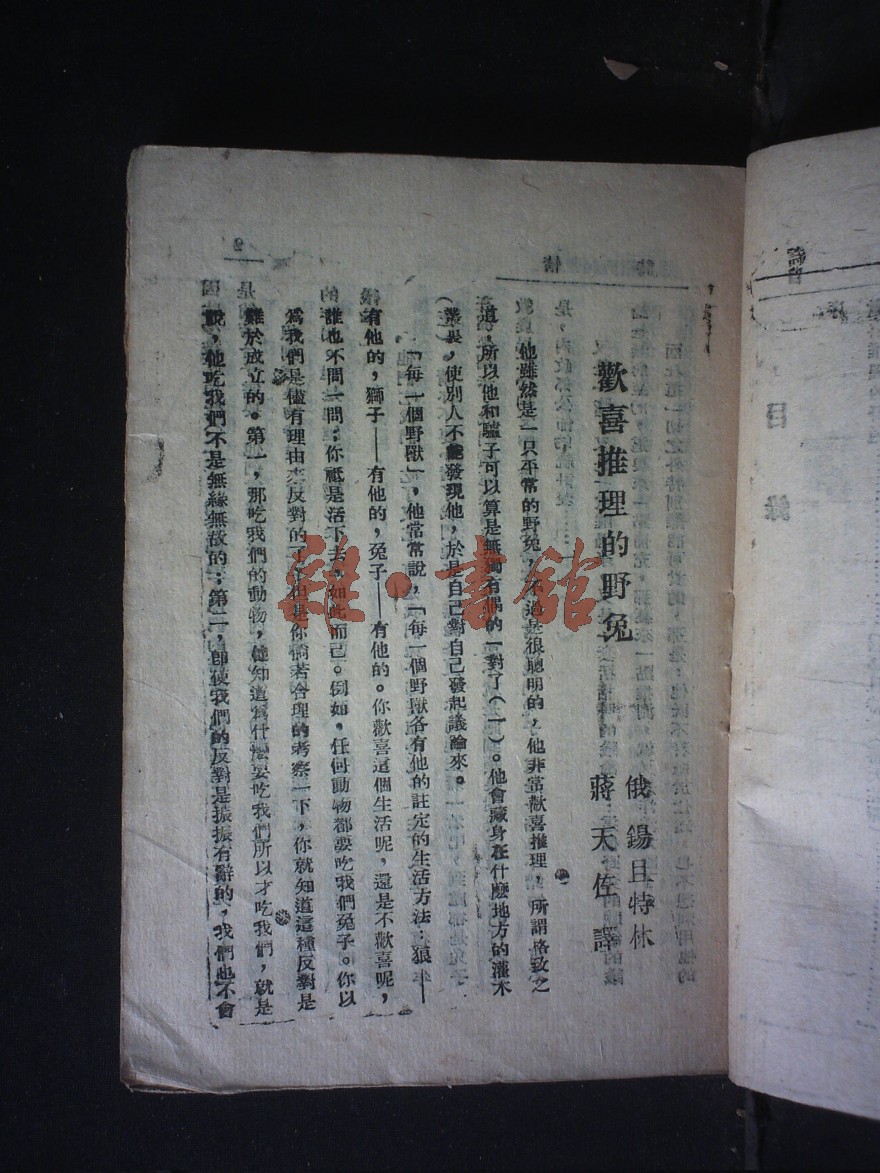 歡喜推理的野兔
俄 錫且特林
蔣天佐 譯
他雖然是一只平常的野兔,不過是很聰明的,他非常歡喜推理,所謂格致之
道,所以他和驢子可以算是無獨有偶的一對了(一)。他會藏身在什麽地方的灌木
叢裏,使別人不能發現他,於是自己對自己發起議論來。
「每一個野獸」,他常常說,「每一個野獸各有他的註定的生活方法:狼——
有他的,獅子——有他的,兔子——有他的。你歡喜這個生活呢,還是不歡喜呢,
誰也不問一問:你祗是活下去,如此而已。例如,任何動物都要吃我們兔子。你以
爲我們是儘有理由來反對的了。但是你倘若合理的考察一下,你就知道這種反對是
難於成立的。第一,那吃我們的動物,儘知道爲什麽要吃我們所以才吃我們,就是
說,他吃我們不是無緣無故的;第二,即使我們的反對是振振有辭的,我們也不會
目錄
雜·書館